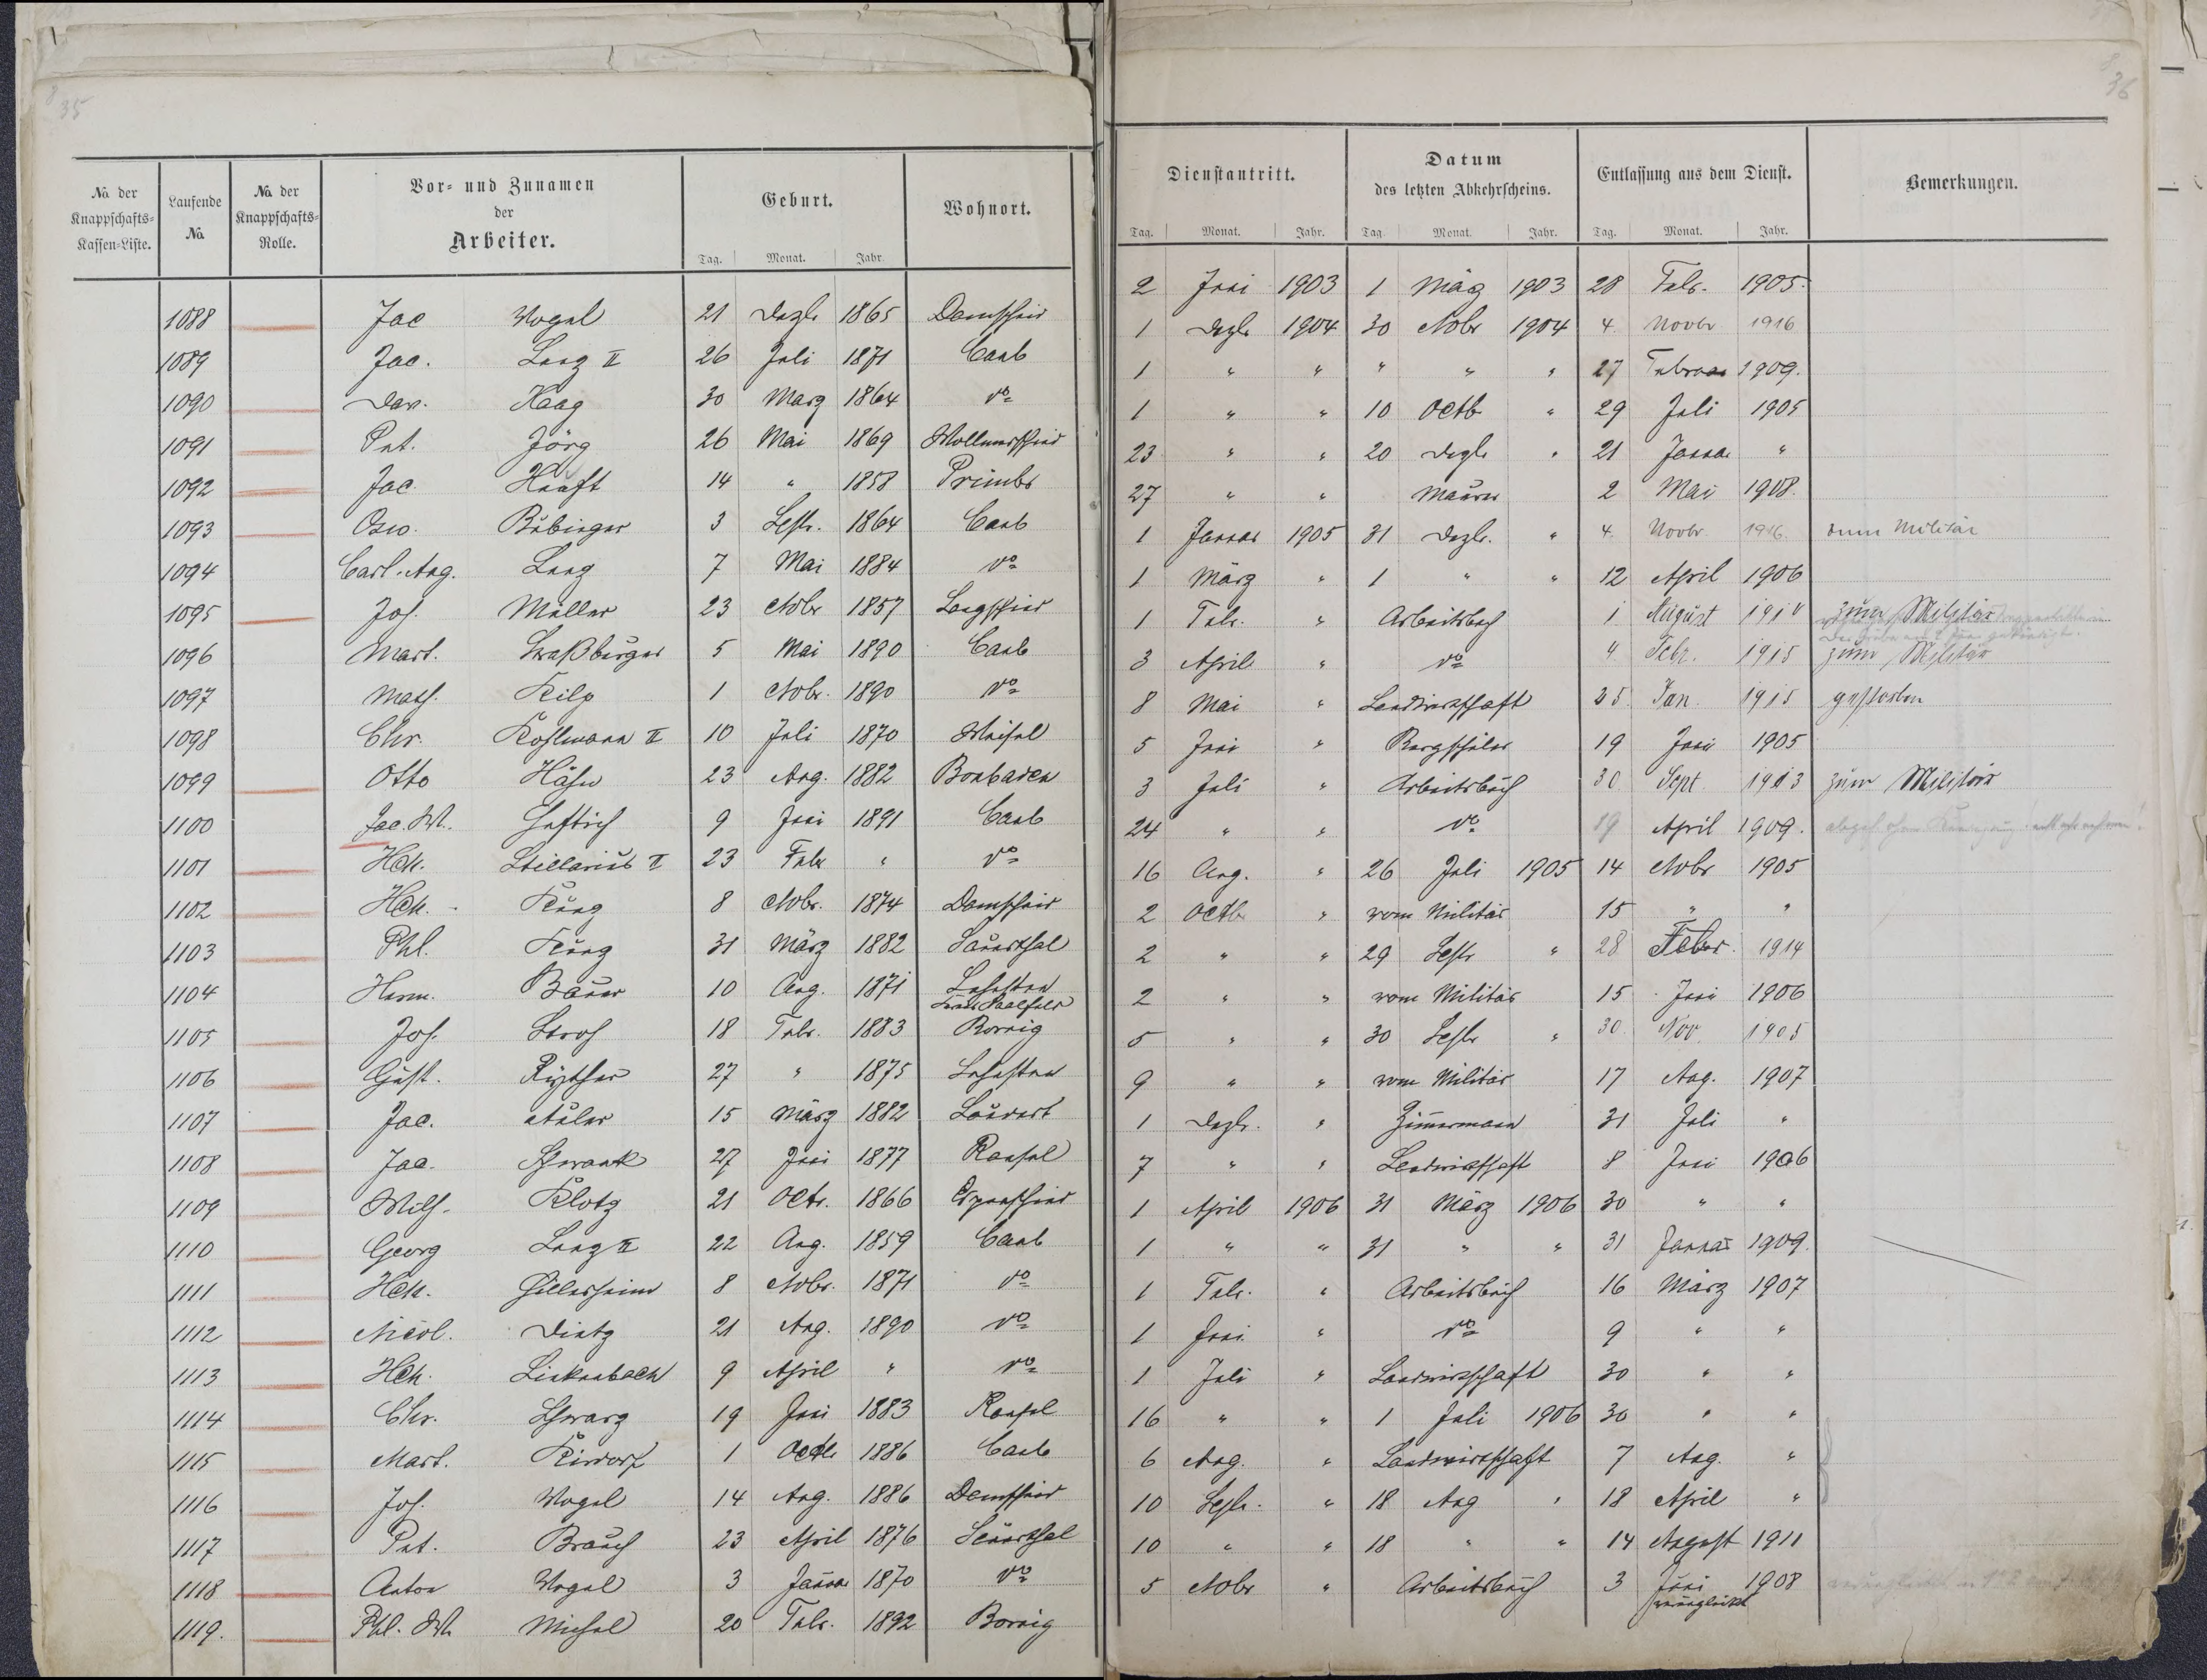 35
36
No. der Knappschafts-Kassen-Liste. Laufende No. No. der Knappschafts-Rolle. Vor- und Zunamen der Arbeiter. Geburt. Wohnort.
Tag. Monat. Jahr.
Dienstantritt. Datum des letzten Abkehrscheins. Entlassung aus dem Dienst. Bemerkungen.
Tag. Monat. Jahr. Tag. Monat. Jahr. Tag. Monat. Jahr.
1088 Jac Vogel 21 Dezbr 1865 Damscheid 2 Juni 1903 1 März 1903 28 Febr. 1905.
1089 Jac. Lang II 26 Juli 1871 Caub 1 Dezbr 1904 30 Nobr 1904 4. Novbr 1916
1090 Dan. Haag 30 März 1864 do 1 " " " " " 27 Februar 1909.
1091 Pet. Jörg 26 Mai 1869 Wollmerscheid 1 " " 10 Octb " 29 Juli 1905
1092 Jac. Hauft 14 " 1858 23 " " 20 Dezbr " 21 Januar "
1093 Bubinger 3 Septr. 1864 Caub 27 " " Maurer 2 Mai 1908.
1094 Carl. Aug. Lang 7 Mai 1884 do 1 Januar 1905 31 Dezbr. " 4. Novbr. 1916. zum Militär
1095 Jos. Müller 23 Nobr 1857 Langscheid 1 März " 1 " " 12 April 1906
1096 Mart. Straßburger 5 Mai 1890 Caub 1 Febr. " Arbeitsbuch 1 August zum Militär
1097 Math. Kilp 1 Nobr. 1890 do 3 April " do 4. Febr. 1915 zum Militär
1098 Chr. Kohlmann II 10 Juli 1870 Weisel 8 Mai " Landwirtschaft 25. Jan. 1915 gestorben
1099 Otto Hähn 23 Aug. 1882 Bonbaden 5 Juni " Bergschüler 19 Juni 1905
1100 Jac. W. Heftrich 9 Juni 1891 Caub 3 Juli " Arbeitsbuch 30 Sept. 1913 zum Militär
1101 Hch. Stillarius II 23 Febr " do 24 " " do 19 April 1909.
1102 Hch. Kung 8 Nobr. 1874 Damscheid 16 Aug. " 26 Juli 1905 14 Nobr 1905
1103 Phl. Kung 31 März 1882 Sauerthal 2 Octb " vom Militär 15 " "
1104 Herm. Bauer 10 Aug. 1871 Lehesten 2 " " 29 Septr " 28 Febr. 1914
1105 Jos. Stroh 18 Febr. 1883 Bornig 2 " " vom Militär 15 Juni 1906
1106 Gust. 27 " 1875 Lehesten 5 " " 30 Septr " 30. Nov. 1905
1107 Jac. Adler 15 März 1882 9 " " vom Militär 17 Aug. 1907
1108 Jac. Schwank 27 Juni 1877 Ransel 1 Dezbr. " Zimmermann 31 Juli "
1109 Wilh. Klotz 21 Octr. 1866 Espenschied 7 " " Landwirtschaft 8 Juni 1906
1110 Georg Lang II 22 Aug. 1859 Caub 1 April 1906 31 März 1906 30 " "
1111 Hch. Hillesheim 8 Nobr. 1871 do 1 " " 31 " " 31 Januar 1909.
1112 Nicol. Dietz 21 Aug. 1890 do 1 Febr. " Arbeitsbuch 16 März 1907
1113 Hch. Linkenbach 9 April " do 1 Juni " do 9 " "
1114 Chr. Schwarz 19 Juni 1883 Ransel 1 Juli " Landwirtschaft 30 " "
1115 Mart. Kirdorf 1 Octb. 1886 Caub 16 " " 1 Juli 1906 30 " "
1116 Jos. Vogel 14 Aug. 1886 Damscheid 6 Aug. " Landwirtschaft 7 Aug. "
1117 Pet. Brauch 23 April 1876 Sauerthal 10 Septr. " 18 Aug " 18 April "
1118 Anton Vogel 3 Januar 1870 do 10 " " 18 " " 14 August 1911
1119. Phl. W. Michel 20 Febr. 1892 Bornig 5 Nobr " Arbeitsbuch 3 Juni 1908
verunglückt